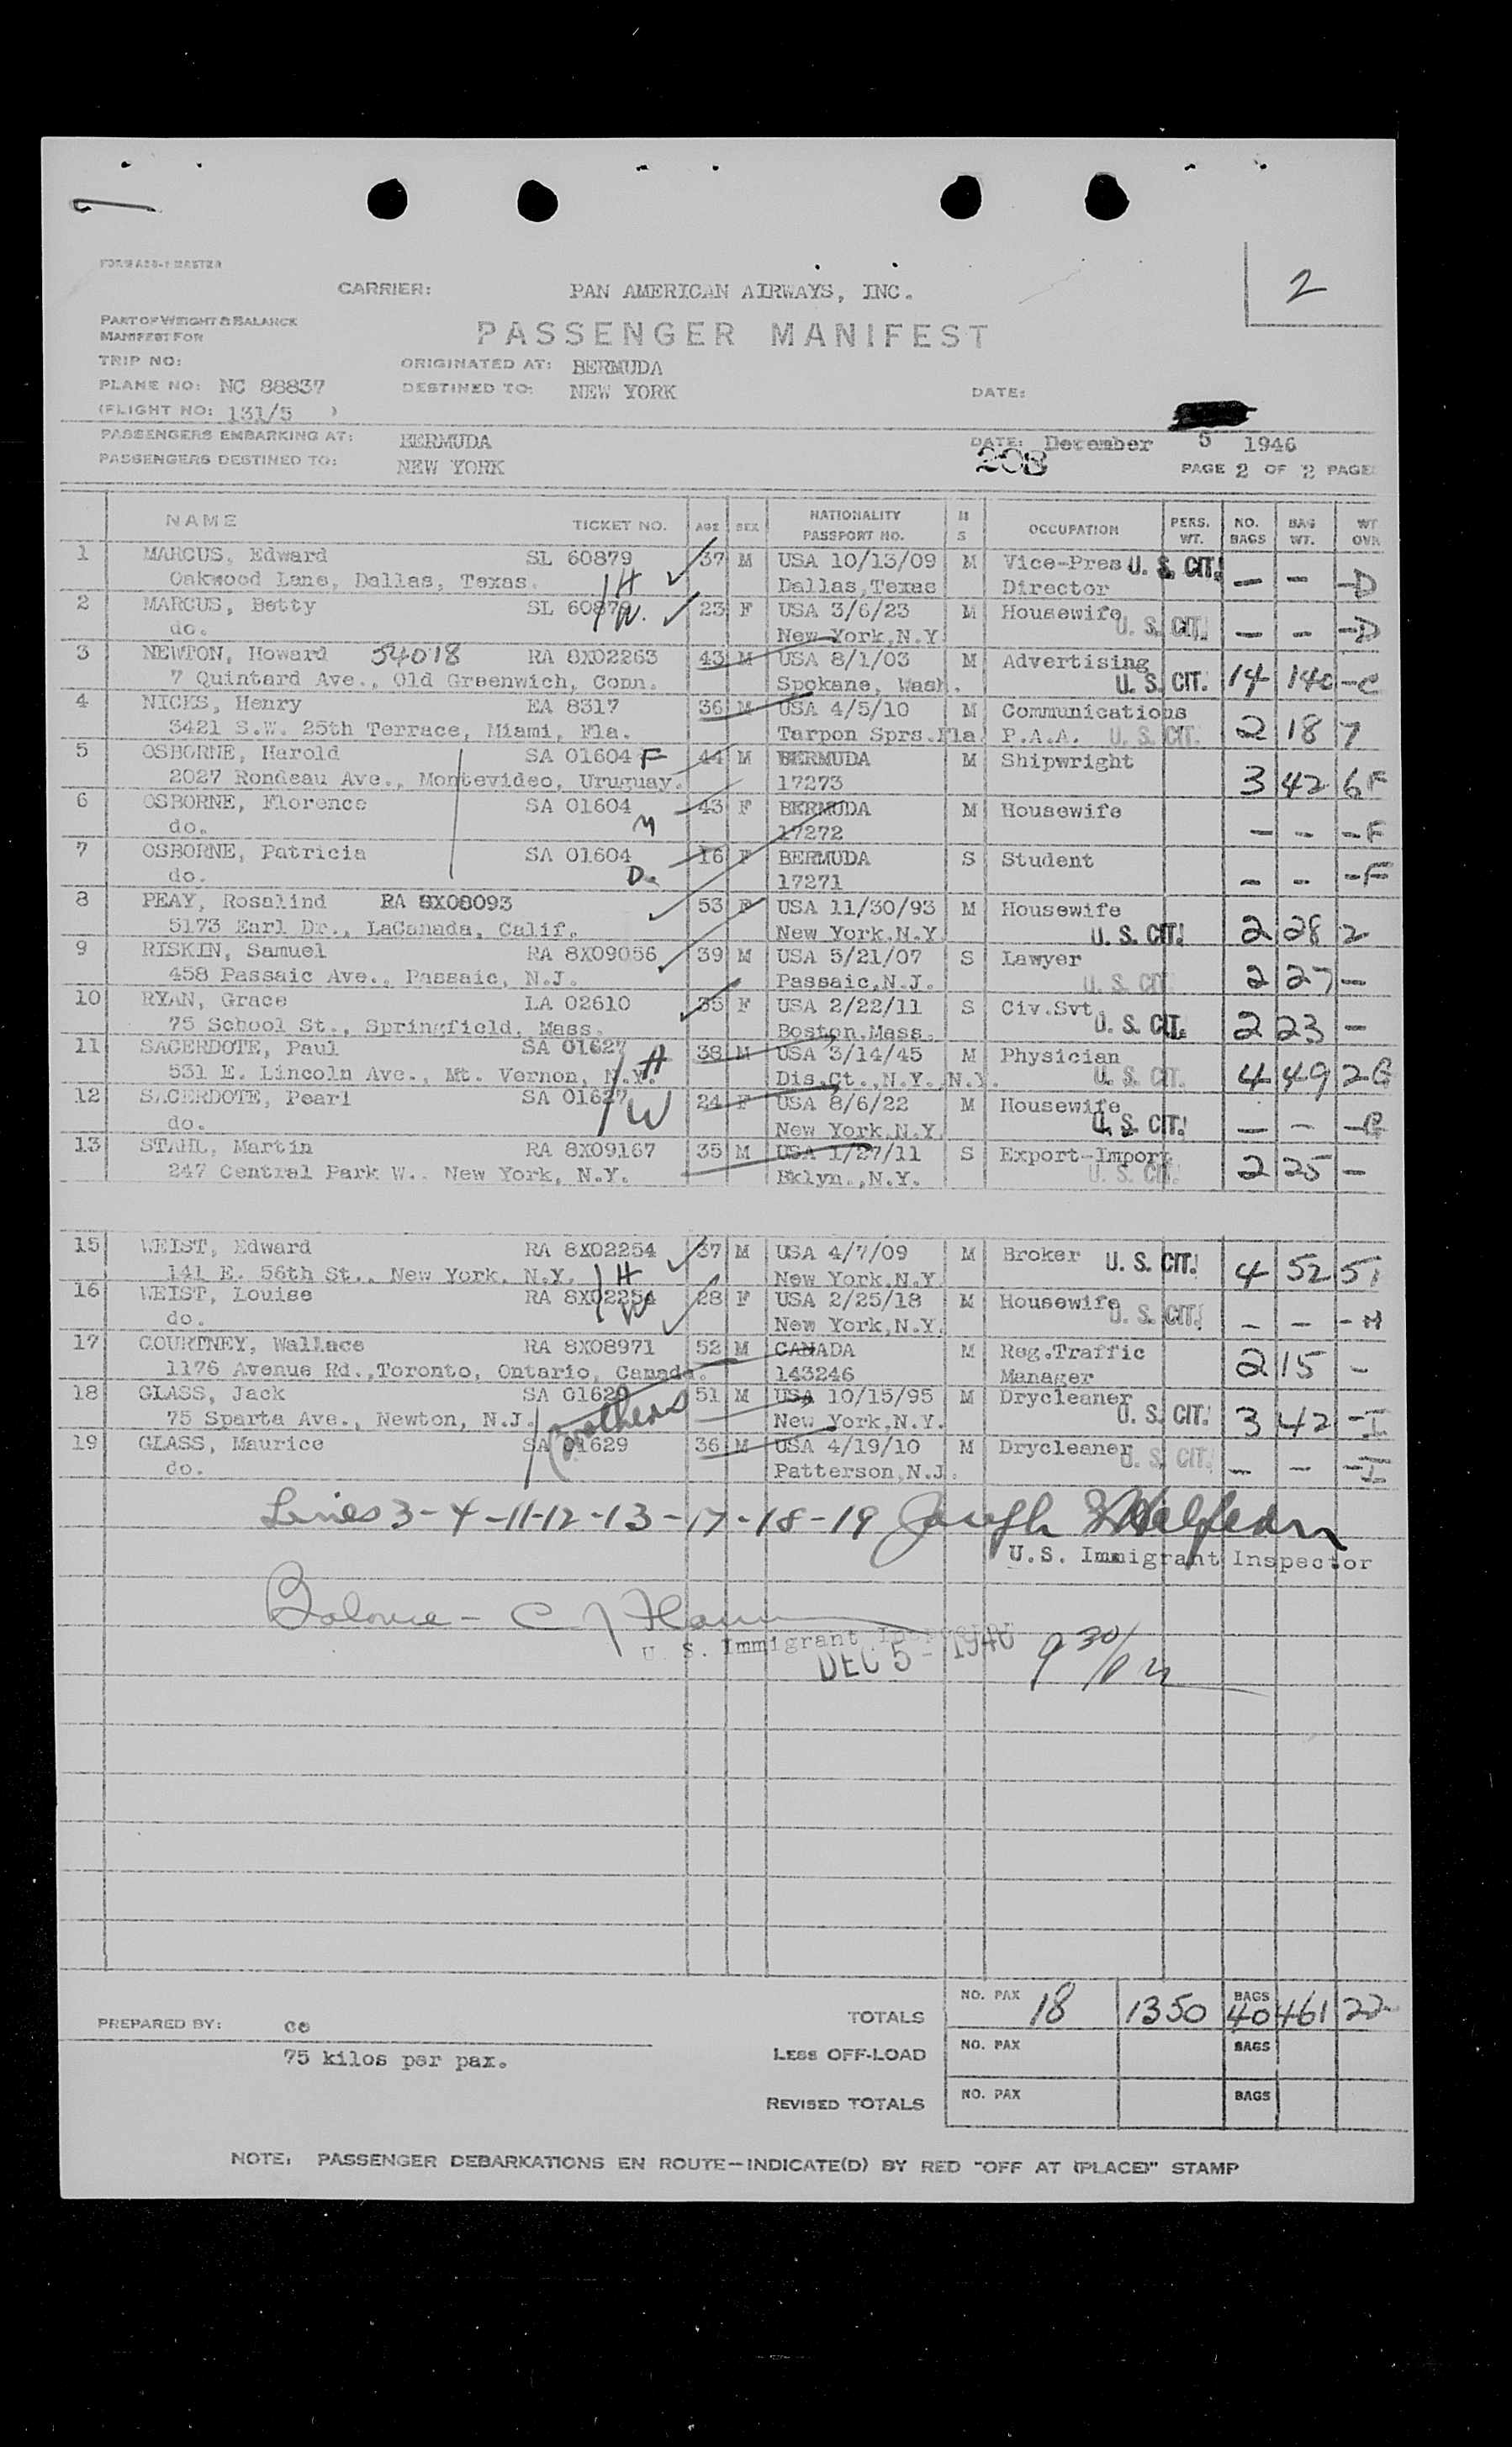 FORWARD-1 MASTER
2
CARRIER: PAN AMERICAN AIRWAYS, INC.
PART OF WEIGHT & BALANCE
MANIFEST FOR
PASSENGER MANIFEST
TRIP NO: ORIGINATED AT: BERMUDA
PLANE NO: NC 88837 DESTINED TO: NEW YORK DATE:
(FLIGHT NO: 131/5 )
PASSENGERS EMBARKING AT: BERMUDA DATE: December 5 1946
PASSENGERS DESTINED TO: NEW YORK 208 PAGE 2 OF 2 PAGE
NAME TICKET NO. AGE SEX NATIONALITY PASSPORT NO. M S OCCUPATION PERS. WT. NO. BAGS BAG WT. WT OVR
1 MARCUS, Edward SL 60879 37 M USA 10/13/09 M Vice-Pres U. S. CIT. — — —D
Oakwood Lane, Dallas, Texas. H Dallas, Texas Director
2 MARCUS, Betty SL 60879 W. 23 F USA 3/6/23 M Housewife U. S. CIT. — — —D
do. New York, N.Y.
3 NEWTON, Howard 54018 RA 8X02263 43 M USA 8/1/03 M Advertising U. S. CIT. 14 140 —C
7 Quintard Ave., Old Greenwich, Conn. Spokane, Wash.
4 NICKS, Henry EA 8317 36 M USA 4/5/10 M Communications 2 18 7
3421 S.W. 25th Terrace, Miami, Fla. Tarpon Sprs. Fla. P.A.A. U. S. CIT.
5 OSBORNE, Harold SA 01604 F 44 M BERMUDA M Shipwright 3 42 6F
2027 Rondeau Ave., Montevideo, Uruguay. 17273
6 OSBORNE, Florence SA 01604 M 43 F BERMUDA M Housewife — — —F
do. 17272
7 OSBORNE, Patricia SA 01604 D. 16 F BERMUDA S Student — — —F
do. 17271
8 PEAY, Rosalind RA 8X08093 53 F USA 11/30/93 M Housewife U. S. CIT. 2 28 2
5173 Earl Dr., LaCanada, Calif. New York, N.Y.
9 RISKIN, Samuel RA 8X09056 39 M USA 5/21/07 S Lawyer U. S. CIT. 2 27 —
458 Passaic Ave., Passaic, N.J. Passaic, N.J.
10 RYAN, Grace LA 02610 35 F USA 2/22/11 S Civ.Svt. U. S. CIT. 2 23 —
75 School St., Springfield, Mass. Boston, Mass.
11 SACERDOTE, Paul SA 01627 H 38 M USA 3/14/45 M Physician U. S. CIT. 4 49 2G
531 E. Lincoln Ave., Mt. Vernon, N.Y. Dis.Ct., N.Y. N.Y.
12 SACERDOTE, Pearl SA 01627 W 24 F USA 8/6/22 M Housewife U. S. CIT. — — —G
do. New York, N.Y.
13 STAHL, Martin RA 8X09167 35 M USA 1/27/11 S Export-Import U. S. CIT. 2 25 —
247 Central Park W.. New York, N.Y. Bklyn., N.Y.
15 WEIST, Edward RA 8X02254 37 M USA 4/7/09 M Broker U. S. CIT. 4 52 5
141 E. 56th St., New York, N.Y. H New York, N.Y.
16 WEIST, Louise RA 8X02254 W 28 F USA 2/25/18 M Housewife U. S. CIT. — — —H
do. New York, N.Y.
17 COURTNEY, Wallace RA 8X08971 52 M CANADA M Reg.Traffic 2 15 —
1176 Avenue Rd., Toronto, Ontario, Canada. 143246 Manager
18 GLASS, Jack SA 01629 51 M USA 10/15/95 M Drycleaner U. S. CIT. 3 42 —I
75 Sparta Ave., Newton, N.J. Brothers New York, N.Y.
19 GLASS, Maurice SA 01629 36 M USA 4/19/10 M Drycleaner U. S. CIT. — — —I
do. Patterson, N.J.
Lines 3-4-11-12-13-17-18-19 Joseph
U.S. Immigrant Inspector
Balance - C J
U. S. Immigrant
DEC 5 - 1946 9 30/PM
TOTALS NO. PAX 18 1350 BAGS 40 461 22
PREPARED BY: cc
75 kilos per pax.
LESS OFF-LOAD NO. PAX BAGS
REVISED TOTALS NO. PAX BAGS
NOTE: PASSENGER DEBARKATIONS EN ROUTE—INDICATE(D) BY RED "OFF AT (PLACE)" STAMP